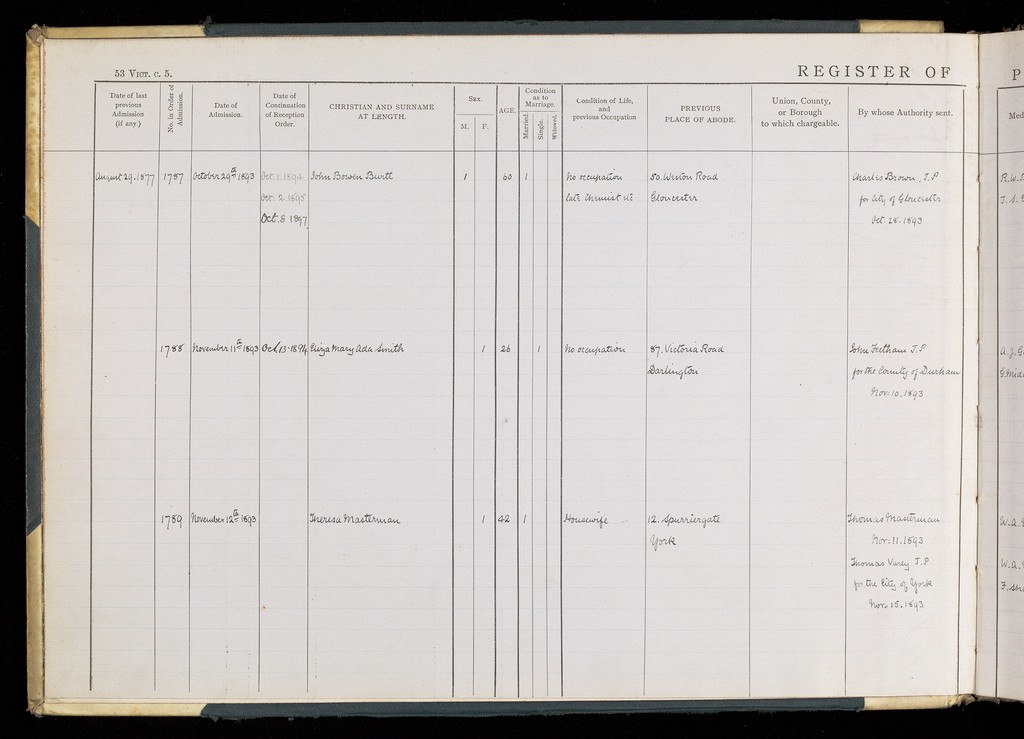 53 Vict. c. 5.
REGISTER OF
P
Date of last previous Admission (if any.)
No. in Order of Admission.
Date of Admission.
Date of Continuation of Reception Order.
CHRISTIAN AND SURNAME AT LENGTH.
Sex.
M. F.
AGE.
Condition as to Marriage.
Married. Single. Widowed.
Condition of Life, and previous Occupation
PREVIOUS PLACE OF ABODE.
Union, County, or Borough to which chargeable.
By whose Authority sent.
Med
August 29. 1877 1787 October 29th 1893 Oct. 1. 1894 John Bowen Burtt 1 60 1 No occupation 50. Weston Road Charles Brown, J.P
Oct. 2. 1895 late Chemist &c Gloucester for City of Gloucester
Oct. 8. 1897 Oct. 28. 1893
1788 November 11th 1893 Oct 13-1894 Eliza Mary Ada Smith 1 26 1 No occupation 87. Victoria Road John Feetham J.P
Darlington for the County of Durham
Nov. 10. 1893
1789 November 12th 1893 Theresa Masterman 1 42 1 Housewife 12. Spurriergate Thomas Masterman
York Nov. 11. 1893
Thomas Varey J.P
for the City of York
Nov. 15. 1893